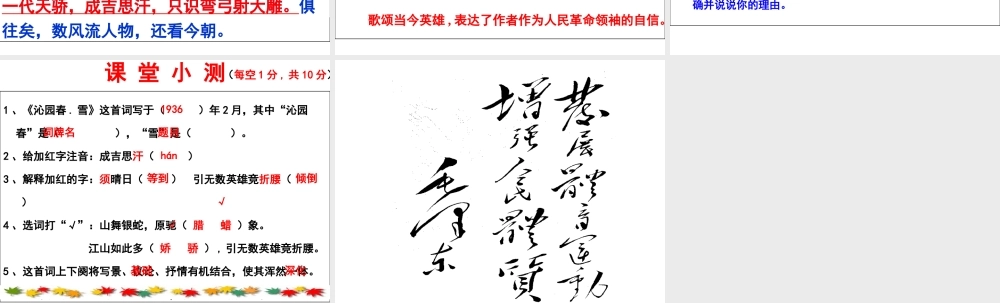 一代天骄，成吉思汗，只识弯弓射大雕。俱
往矣，数风流人物，还看今朝。
歌颂当今英雄，表达了作者作为人民革命领袖的自信。
确并说说你的理由。
课 堂 小 测（每空1分，共10分）
1、《沁园春．雪》这首词写于（1936 ）年2月，其中“沁园
春”是（词牌名 ），“雪”是（题目 ）。
2、给加红字注音：成吉思汗（ hán ）
3、解释加红的字：须晴日（ 等到 ） 引无数英雄竞折腰（ 倾倒
）
√
4、选词打“√”：山舞银蛇，原驰（ 腊 蜡 ）象。
江山如此多（ 娇 骄 ），引无数英雄竞折腰。
5、这首词上下阕将写景、议论、抒情有机结合，使其浑然一体。
發展體育運動
增强人民體質
毛泽东